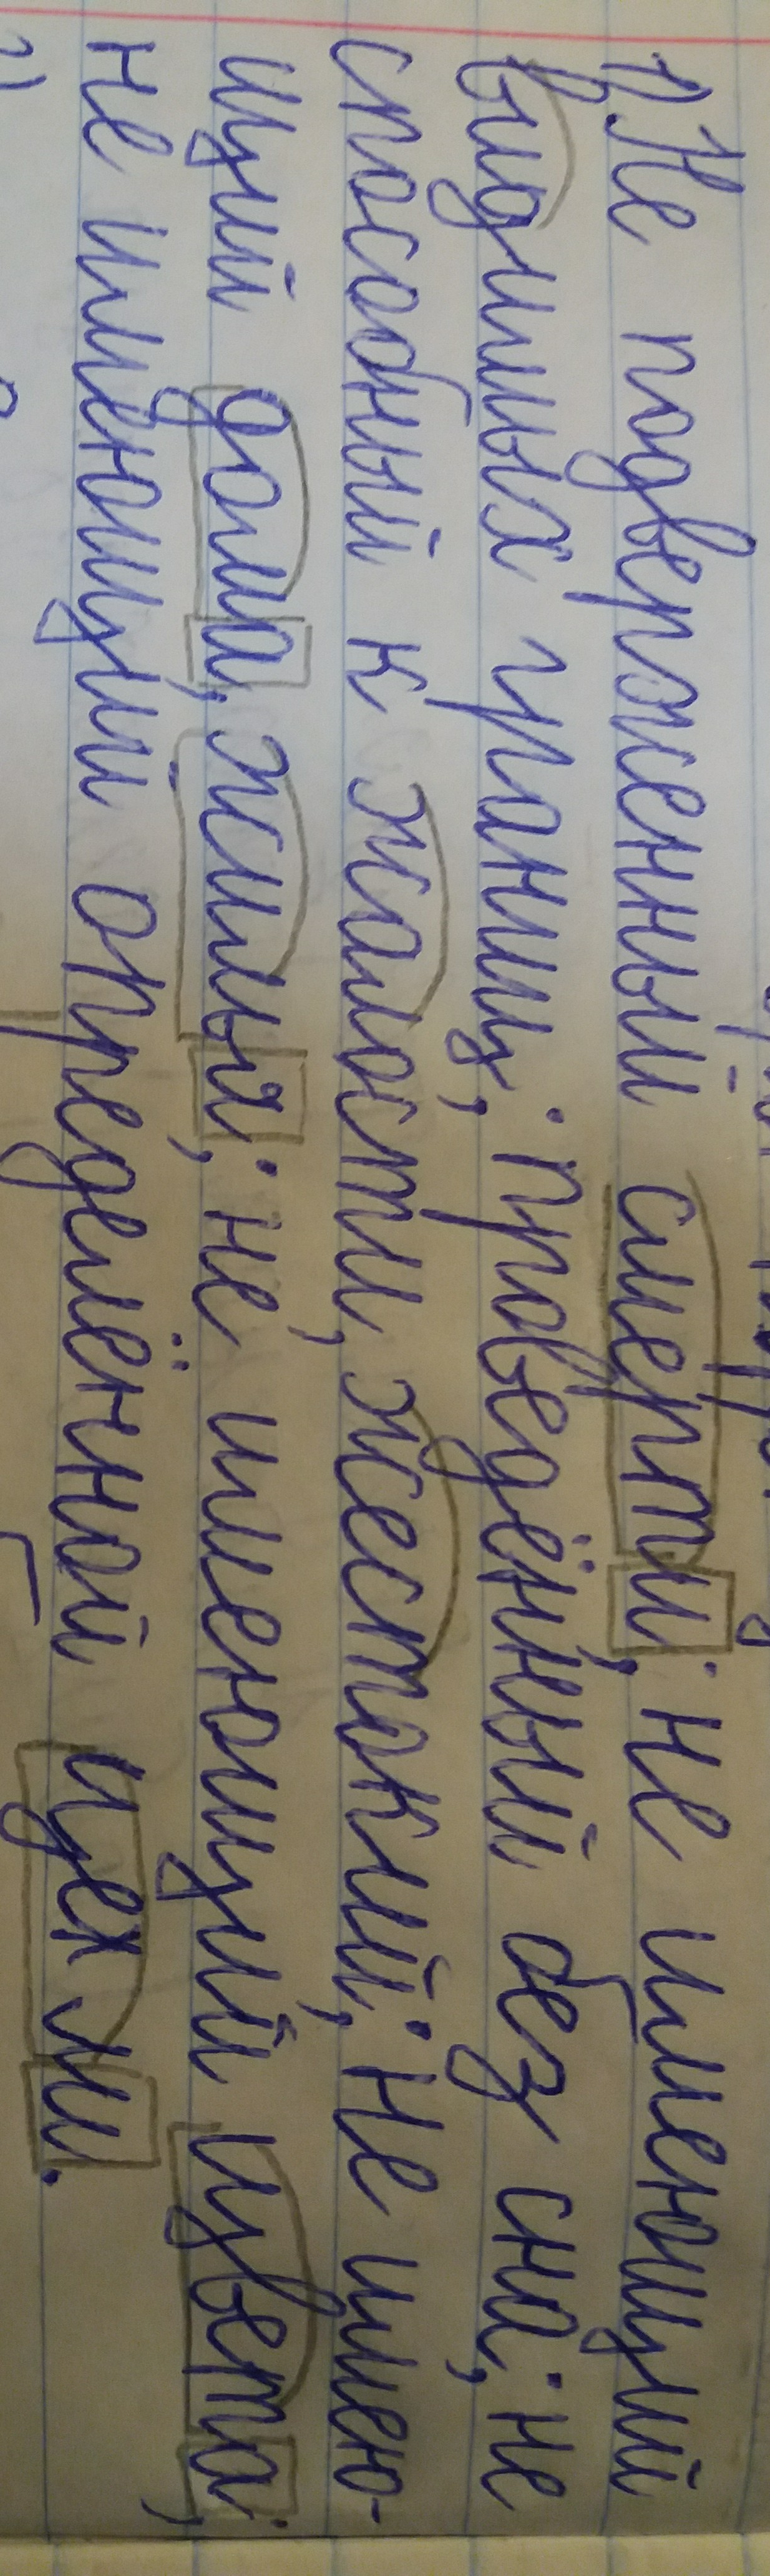 1). Не подверженный смерти; не имеющий
видимых границ; проведённый без сна; не
способный к жалости, жестокий; не имею-
щий дома, жилья; не имеющий цвета;
не имеющим определённой цех ли.
2)